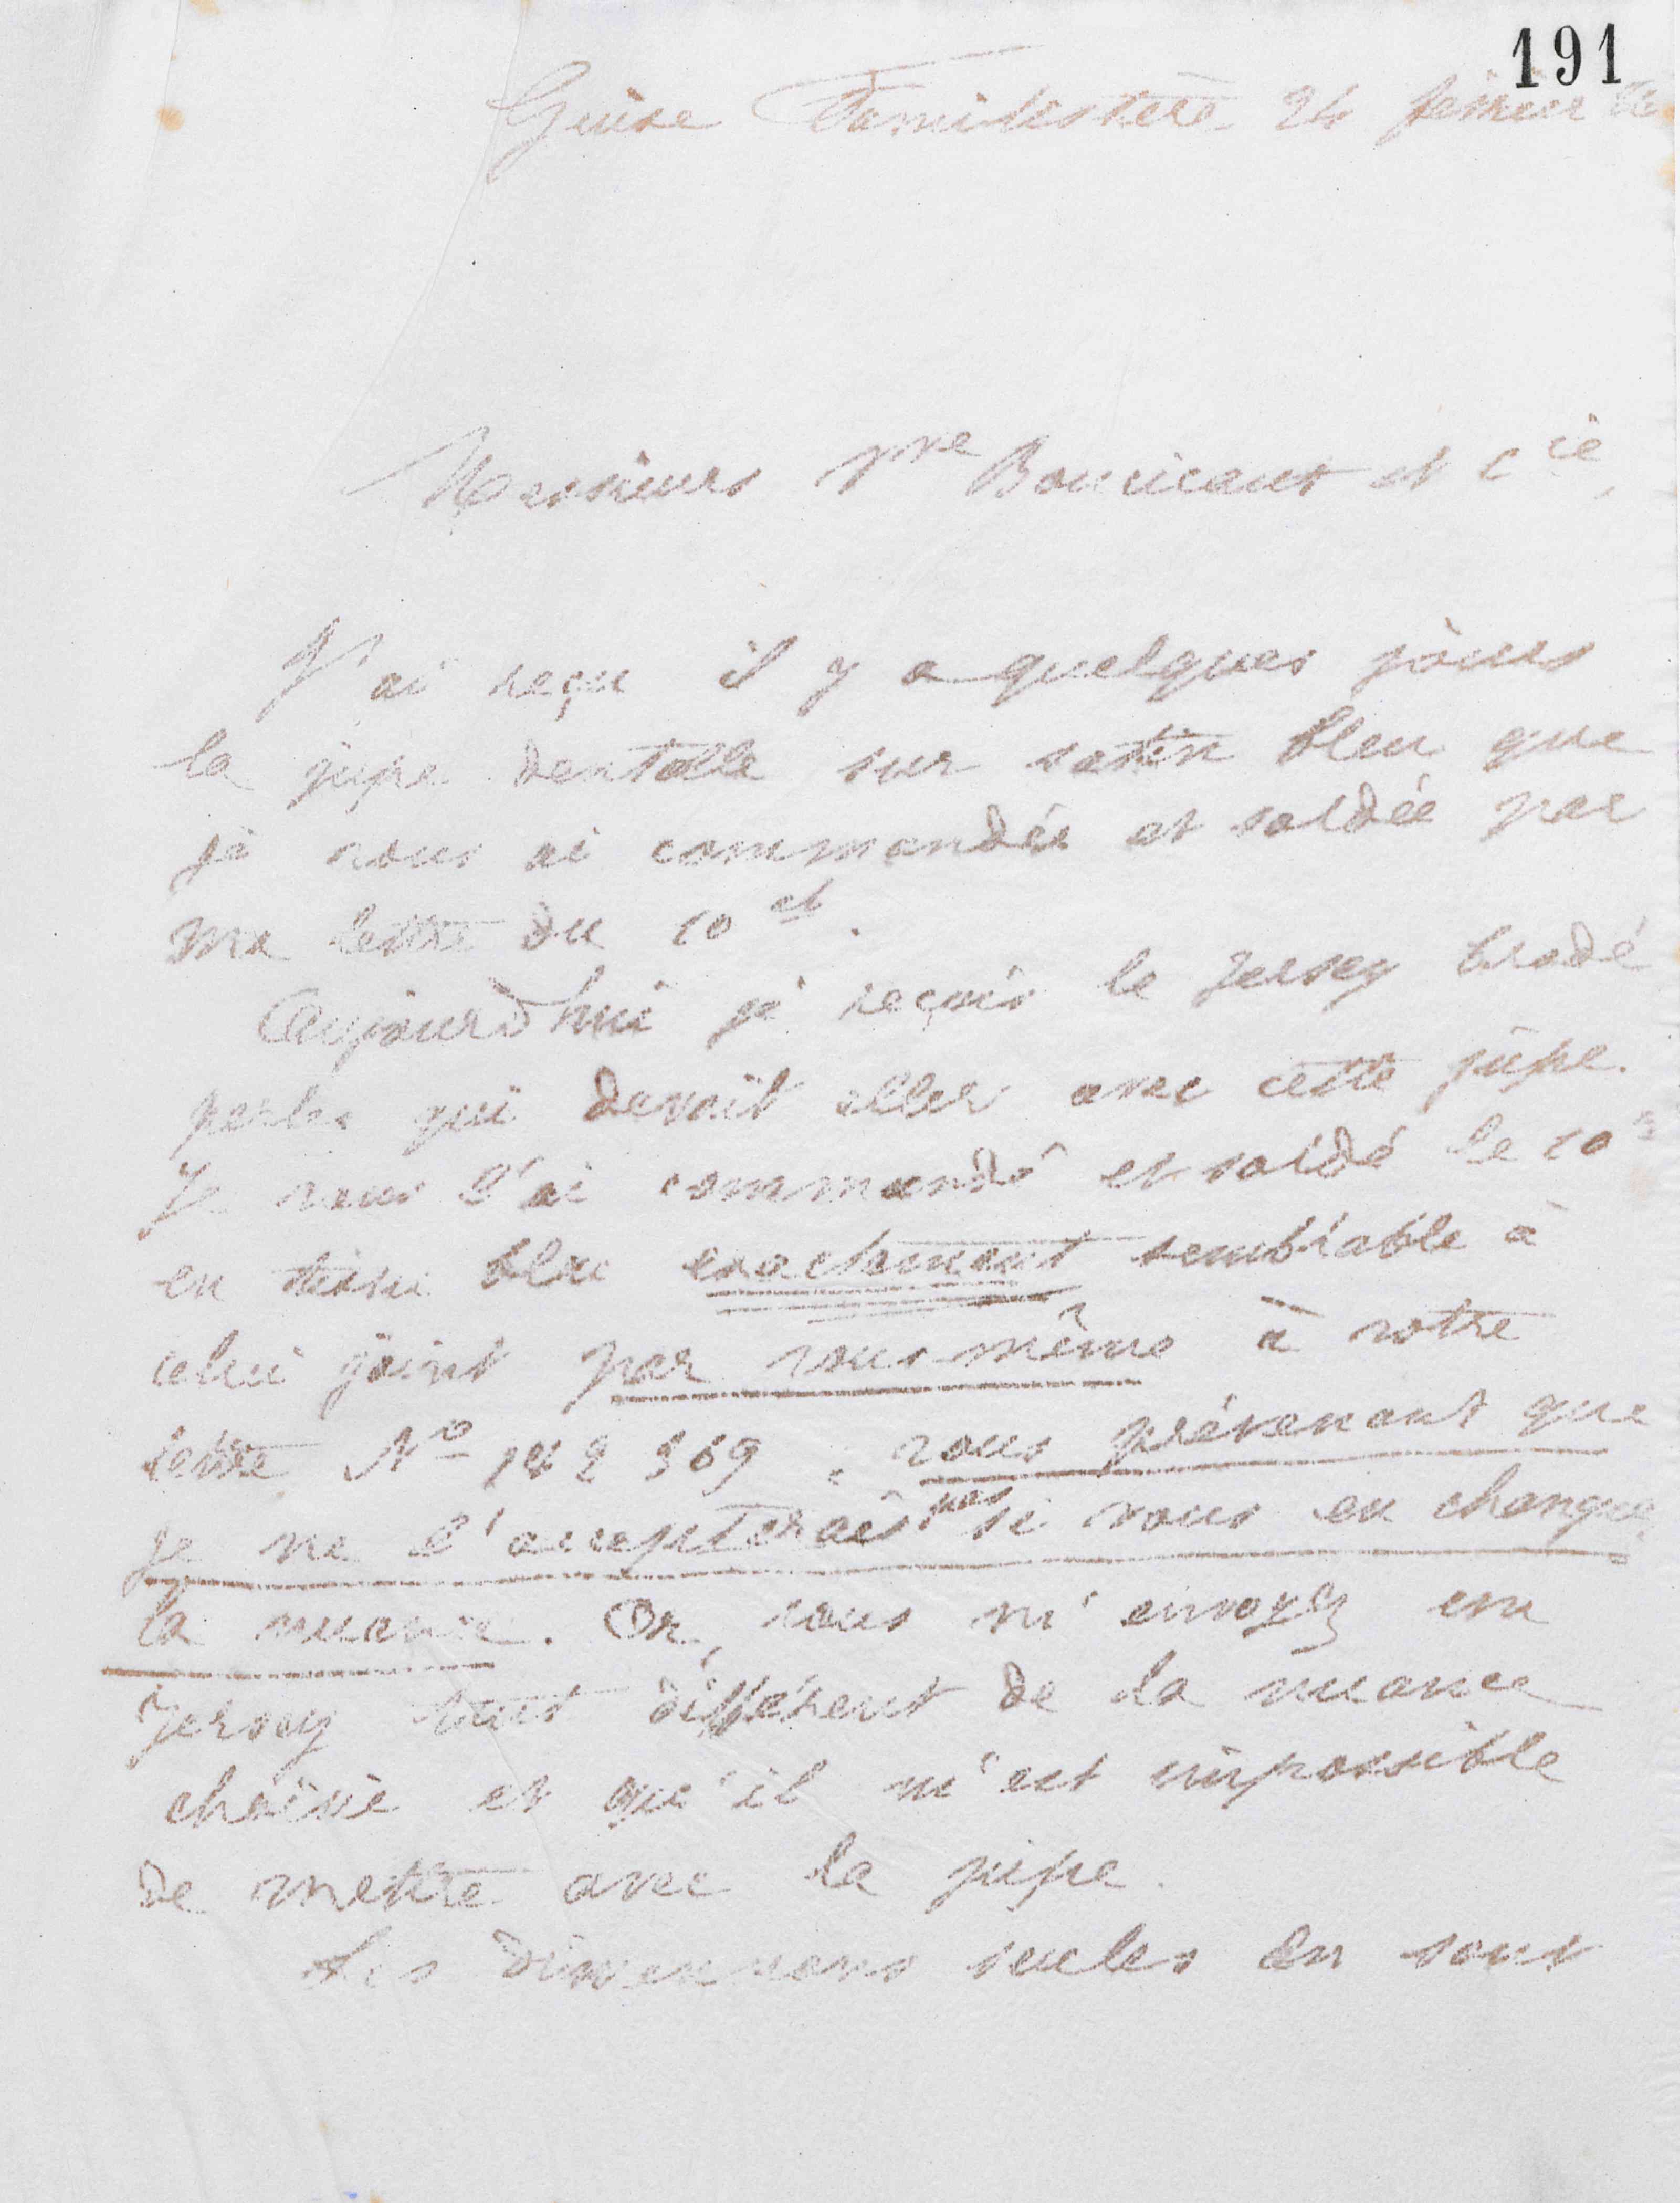 191
Guise Familistère 24 février 86
Messieurs Vve Boucicaut et Cie,
J'ai reçu il y a quelques jours
la jupe dentelle sur satin bleu que
je vous ai commandée et soldée par
ma lettre du 10 ct.
Aujourd'hui je reçois le Jersey brodé
perles qui devait aller avec cette jupe.
Je vous l'ai commandé et soldé le 10
en tissu bleu exactement semblable à
celui joint par vous-même à votre
lettre No 142 369, vous prévenant que
je ne l'accepterais pas si vous en changiez
la nuance. Or, vous m'envoyez un
Jersey tout différent de la nuance
choisie et qu'il m'est impossible
de mettre avec la jupe.
Les dimensions seules en sont